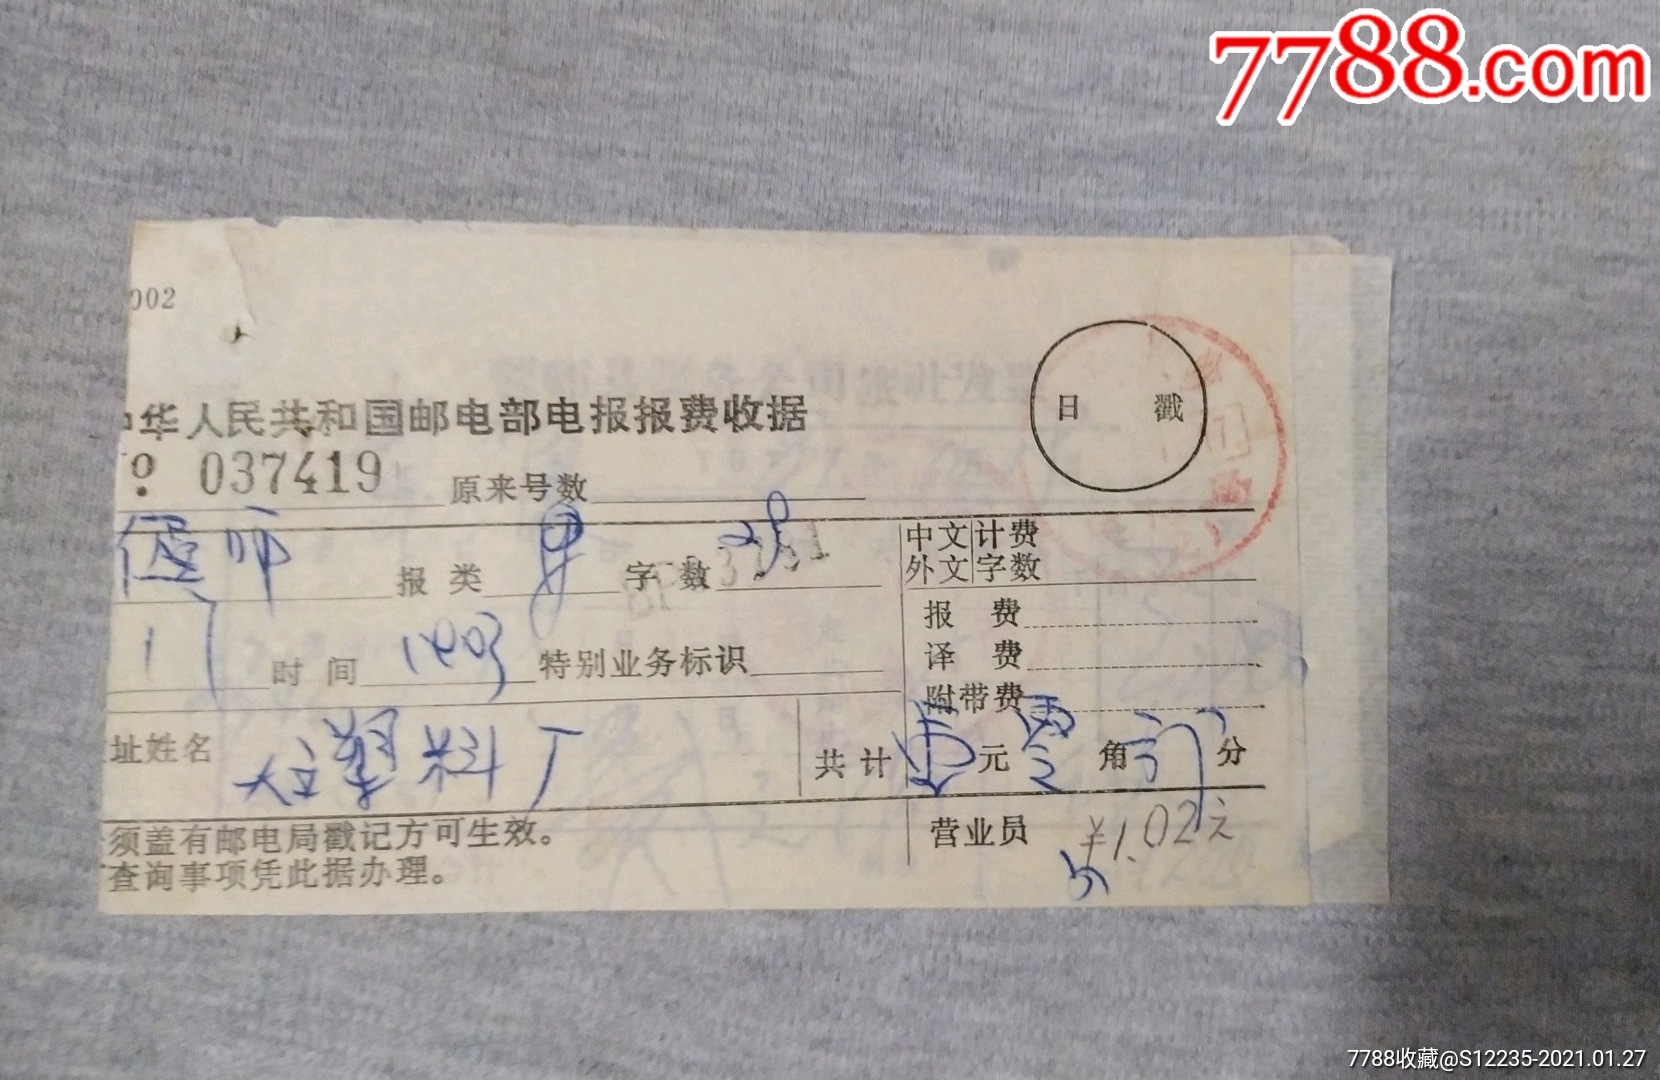 7788.com
002
中华人民共和国邮电部电报报费收据
日 戳
No. 037419 原来号数
偃师 报类 字数 中文计费
外文字数
17 时间 1403 特别业务标识 报费
译费
附带费
址姓名 塑料厂 共计 壹元零角 分
须盖有邮电局戳记方可生效。 营业员 ¥1.02元
查询事项凭此据办理。
7788收藏@S12235-2021.01.27